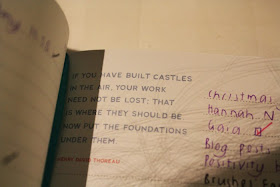 IF YOU HAVE BUILT CASTLES
IN THE AIR, YOUR WORK
NEED NOT BE LOST; THAT
IS WHERE THEY SHOULD BE
NOW PUT THE FOUNDATIONS
UNDER THEM
HENRY DAVID THOREAU
Christmas
Hannah N
Gaia
Blog posts
Positivity
Brushes